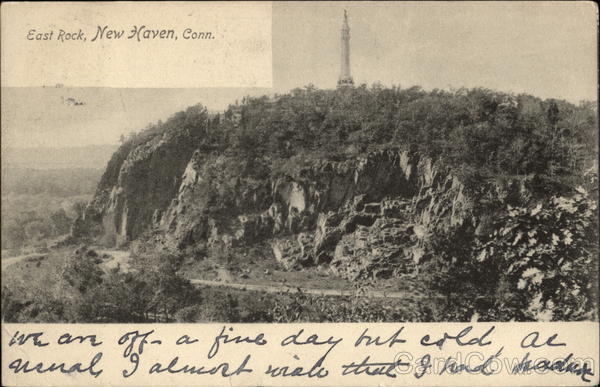 East Rock, New Haven, Conn.
we are off - a fine day but cold, as
usual, I almost wish that I had
CardCow.com